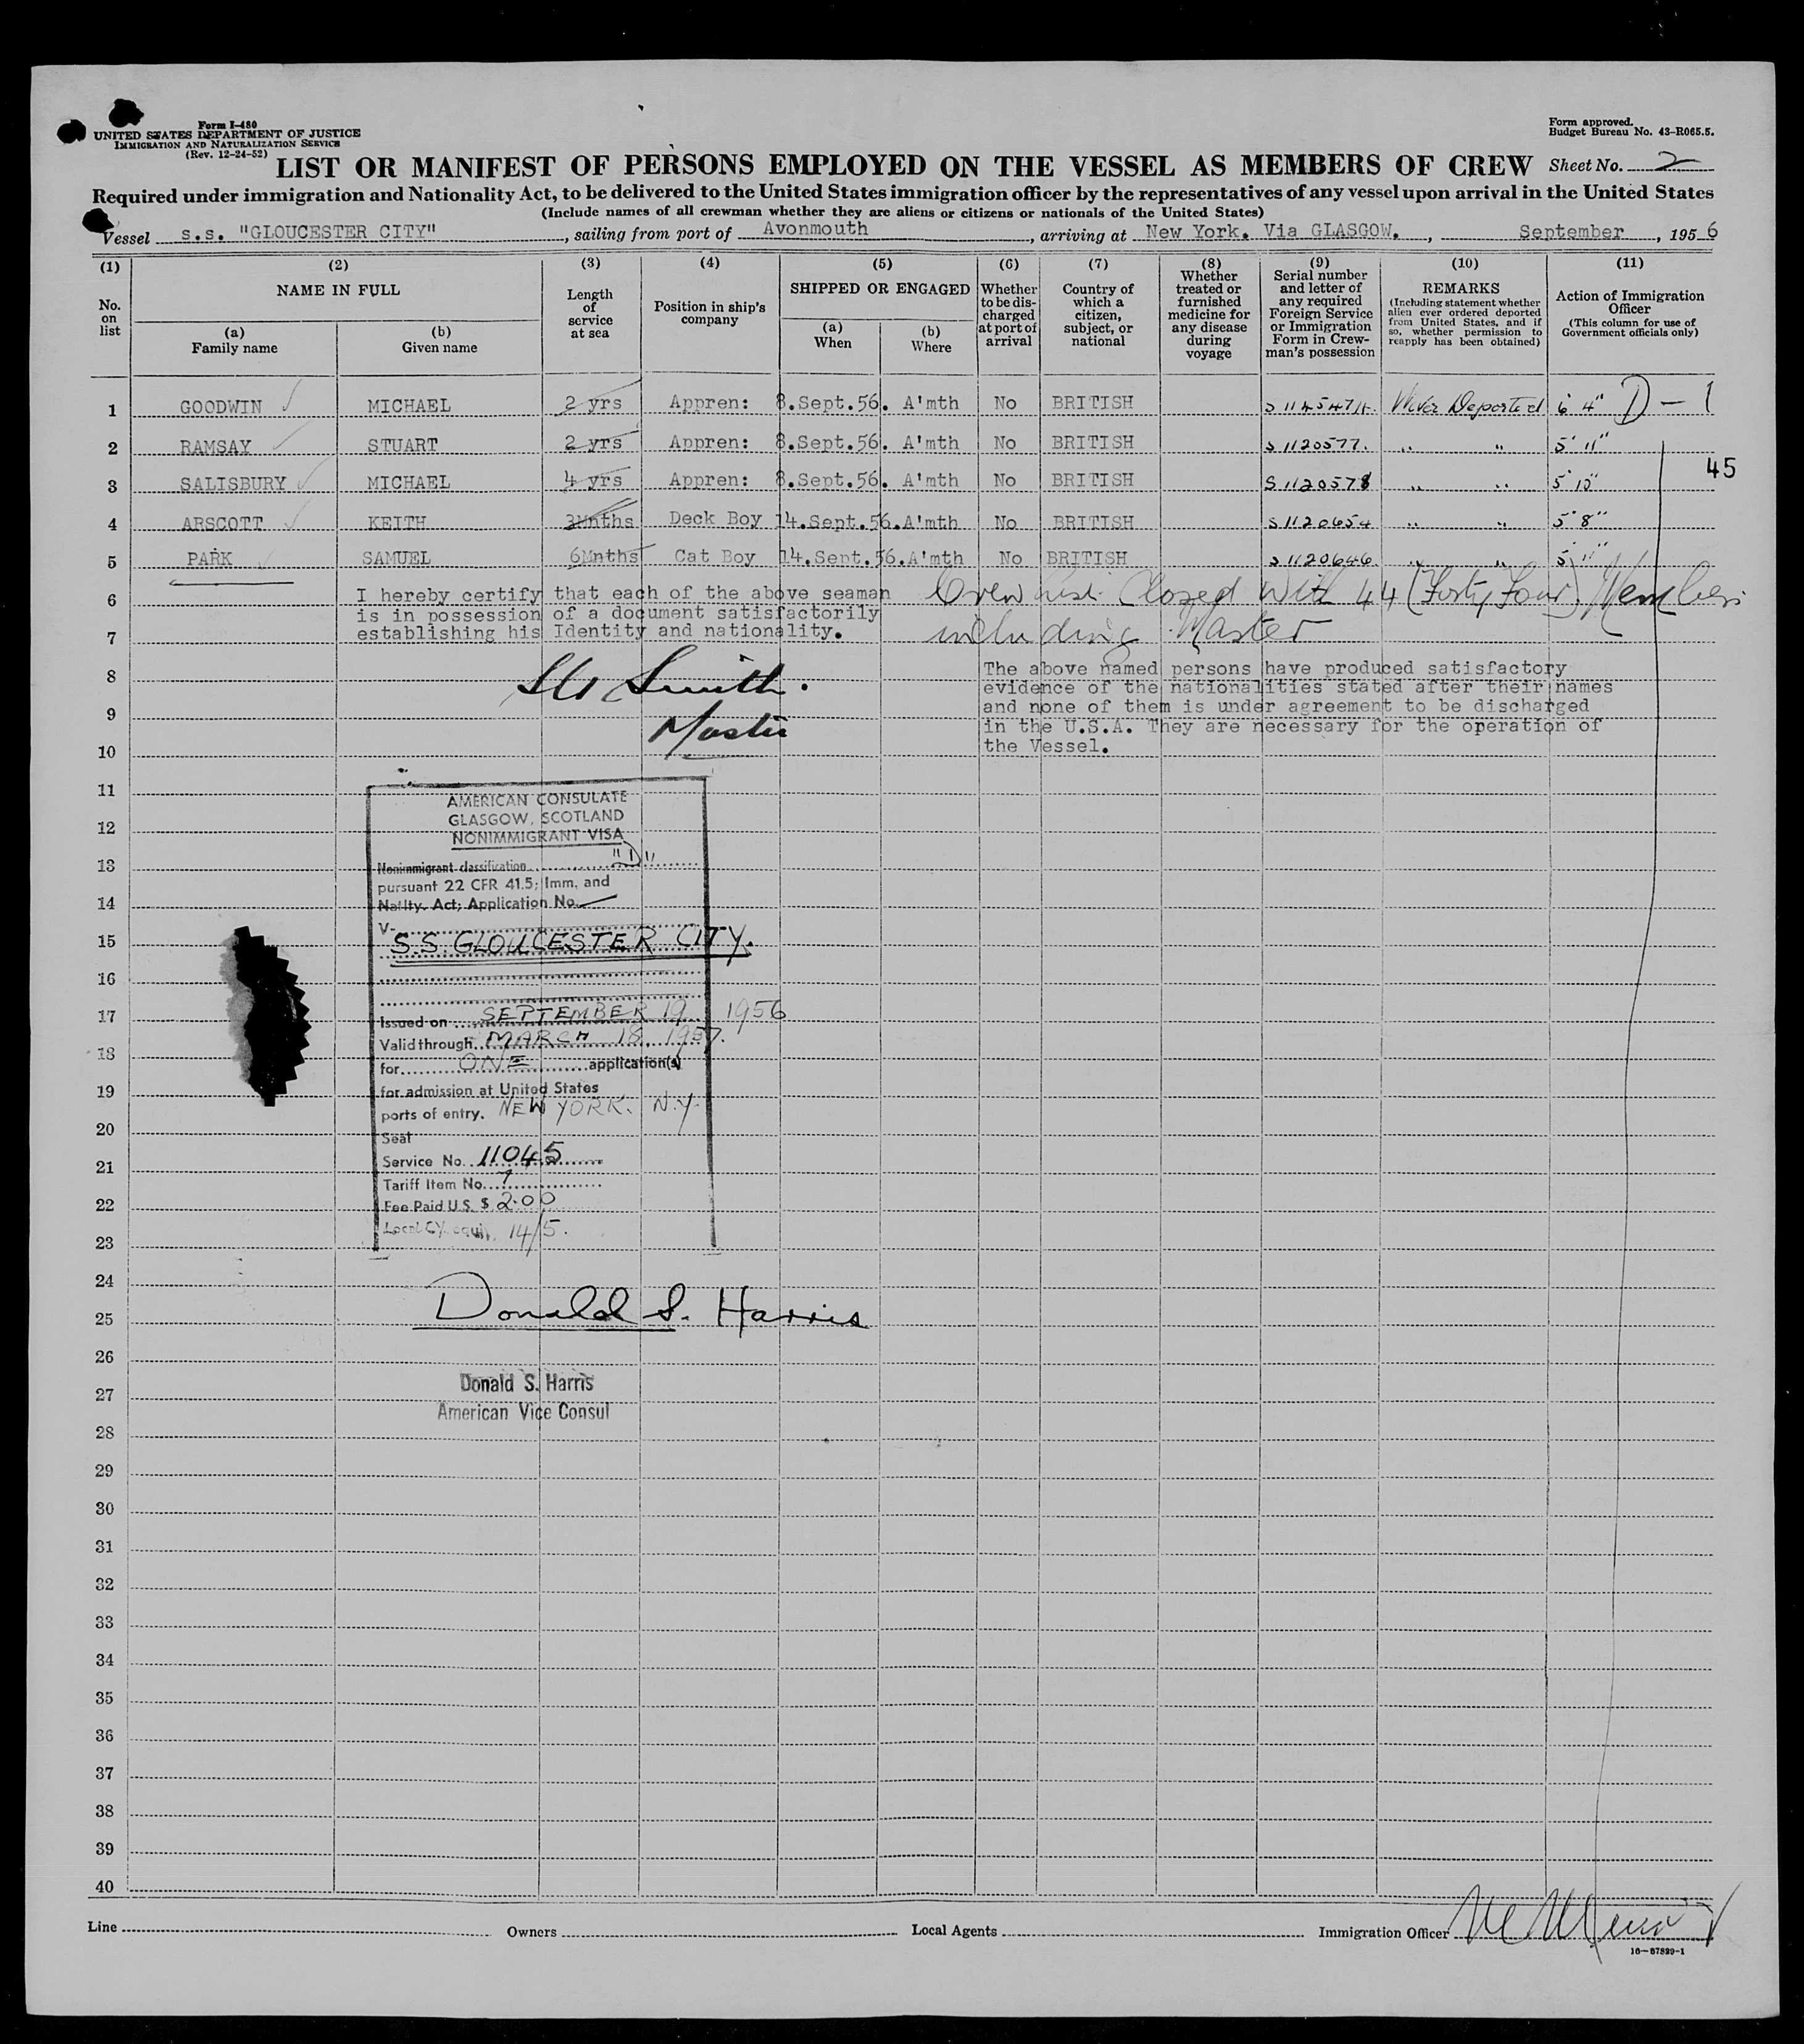 Form I-480
UNITED STATES DEPARTMENT OF JUSTICE
IMMIGRATION AND NATURALIZATION SERVICE
(Rev. 12-24-52)
Form approved.
Budget Bureau No. 43-R065.5.
LIST OR MANIFEST OF PERSONS EMPLOYED ON THE VESSEL AS MEMBERS OF CREW Sheet No. 2
Required under immigration and Nationality Act, to be delivered to the United States immigration officer by the representatives of any vessel upon arrival in the United States
(Include names of all crewman whether they are aliens or citizens or nationals of the United States)
Vessel s.s. "GLOUCESTER CITY", sailing from port of Avonmouth, arriving at New York. Via GLASGOW., September, 1956
(1) (2) (3) (4) (5) (6) (7) (8) (9) (10) (11)
No. on list
NAME IN FULL
(a) Family name
(b) Given name
Length of service at sea
Position in ship's company
SHIPPED OR ENGAGED
(a) When
(b) Where
Whether to be discharged at port of arrival
Country of which a citizen, subject, or national
Whether treated or furnished medicine for any disease during voyage
Serial number and letter of any required Foreign Service or Immigration Form in Crewman's possession
REMARKS
(Including statement whether alien ever ordered deported from United States, and if so, whether permission to reapply has been obtained)
Action of Immigration Officer
(This column for use of Government officials only)
1 GOODWIN MICHAEL 2 yrs Appren: 8.Sept.56. A'mth No BRITISH Deported 6' 4" D - 1
2 RAMSAY STUART 2 yrs Appren: 8.Sept.56. A'mth No BRITISH S 1120577. " " 5' 11"
3 SALISBURY MICHAEL 4 yrs Appren: 8.Sept.56. A'mth No BRITISH S 1120578 " " 5' 10"
45
4 ARSCOTT KEITH 3Mnths Deck Boy 14.Sept.56.A'mth No BRITISH S 1120654 " " 5' 8"
5 PARK SAMUEL 6Mnths Cat Boy 14.Sept.56.A'mth No BRITISH S 1120646 " " 5' 11"
6
7
I hereby certify that each of the above seaman
is in possession of a document satisfactorily
establishing his Identity and nationality.
Crew List Closed With 44 (Forty Four) Members
including Master
8
9
10
Smith.
Master
The above named persons have produced satisfactory
evidence of the nationalities stated after their names
and none of them is under agreement to be discharged
in the U.S.A. They are necessary for the operation of
the Vessel.
11
12
13
14
15
16
17
18
19
20
21
22
23
AMERICAN CONSULATE
GLASGOW, SCOTLAND
NONIMMIGRANT VISA
Nonimmigrant classification "D"
pursuant 22 CFR 41.5; Imm. and
Natlty. Act; Application No.
V-
S.S. GLOUCESTER CITY.
Issued on SEPTEMBER 19 1956
Valid through MARCH 18, 1957.
for ONE application(s)
for admission at United States
ports of entry. NEW YORK. N.Y.
Seal
Service No. 11045
Tariff Item No. 7
Fee Paid U.S. $ 2.00
Local CY. equiv. 14/5.
24
25
Donald S. Harris
26
27
28
Donald S. Harris
American Vice Consul
29
30
31
32
33
34
35
36
37
38
39
40
Line Owners Local Agents Immigration Officer
16-67829-1